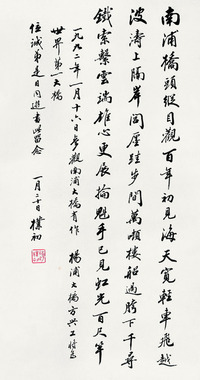 南浦橋頭縱目觀百年初見海天寬輕車飛越
波濤上隔岸閭廛跬步間萬噸樓船過胯下千尋
鐵索繫雲端雄心更展掄魁手已見虹光百尺竿
一九九二年一月十六日參觀南浦大橋有作 楊浦大橋方興工
世界第一大橋
位誠弟是日同遊書此留念
一月二十日 樸初